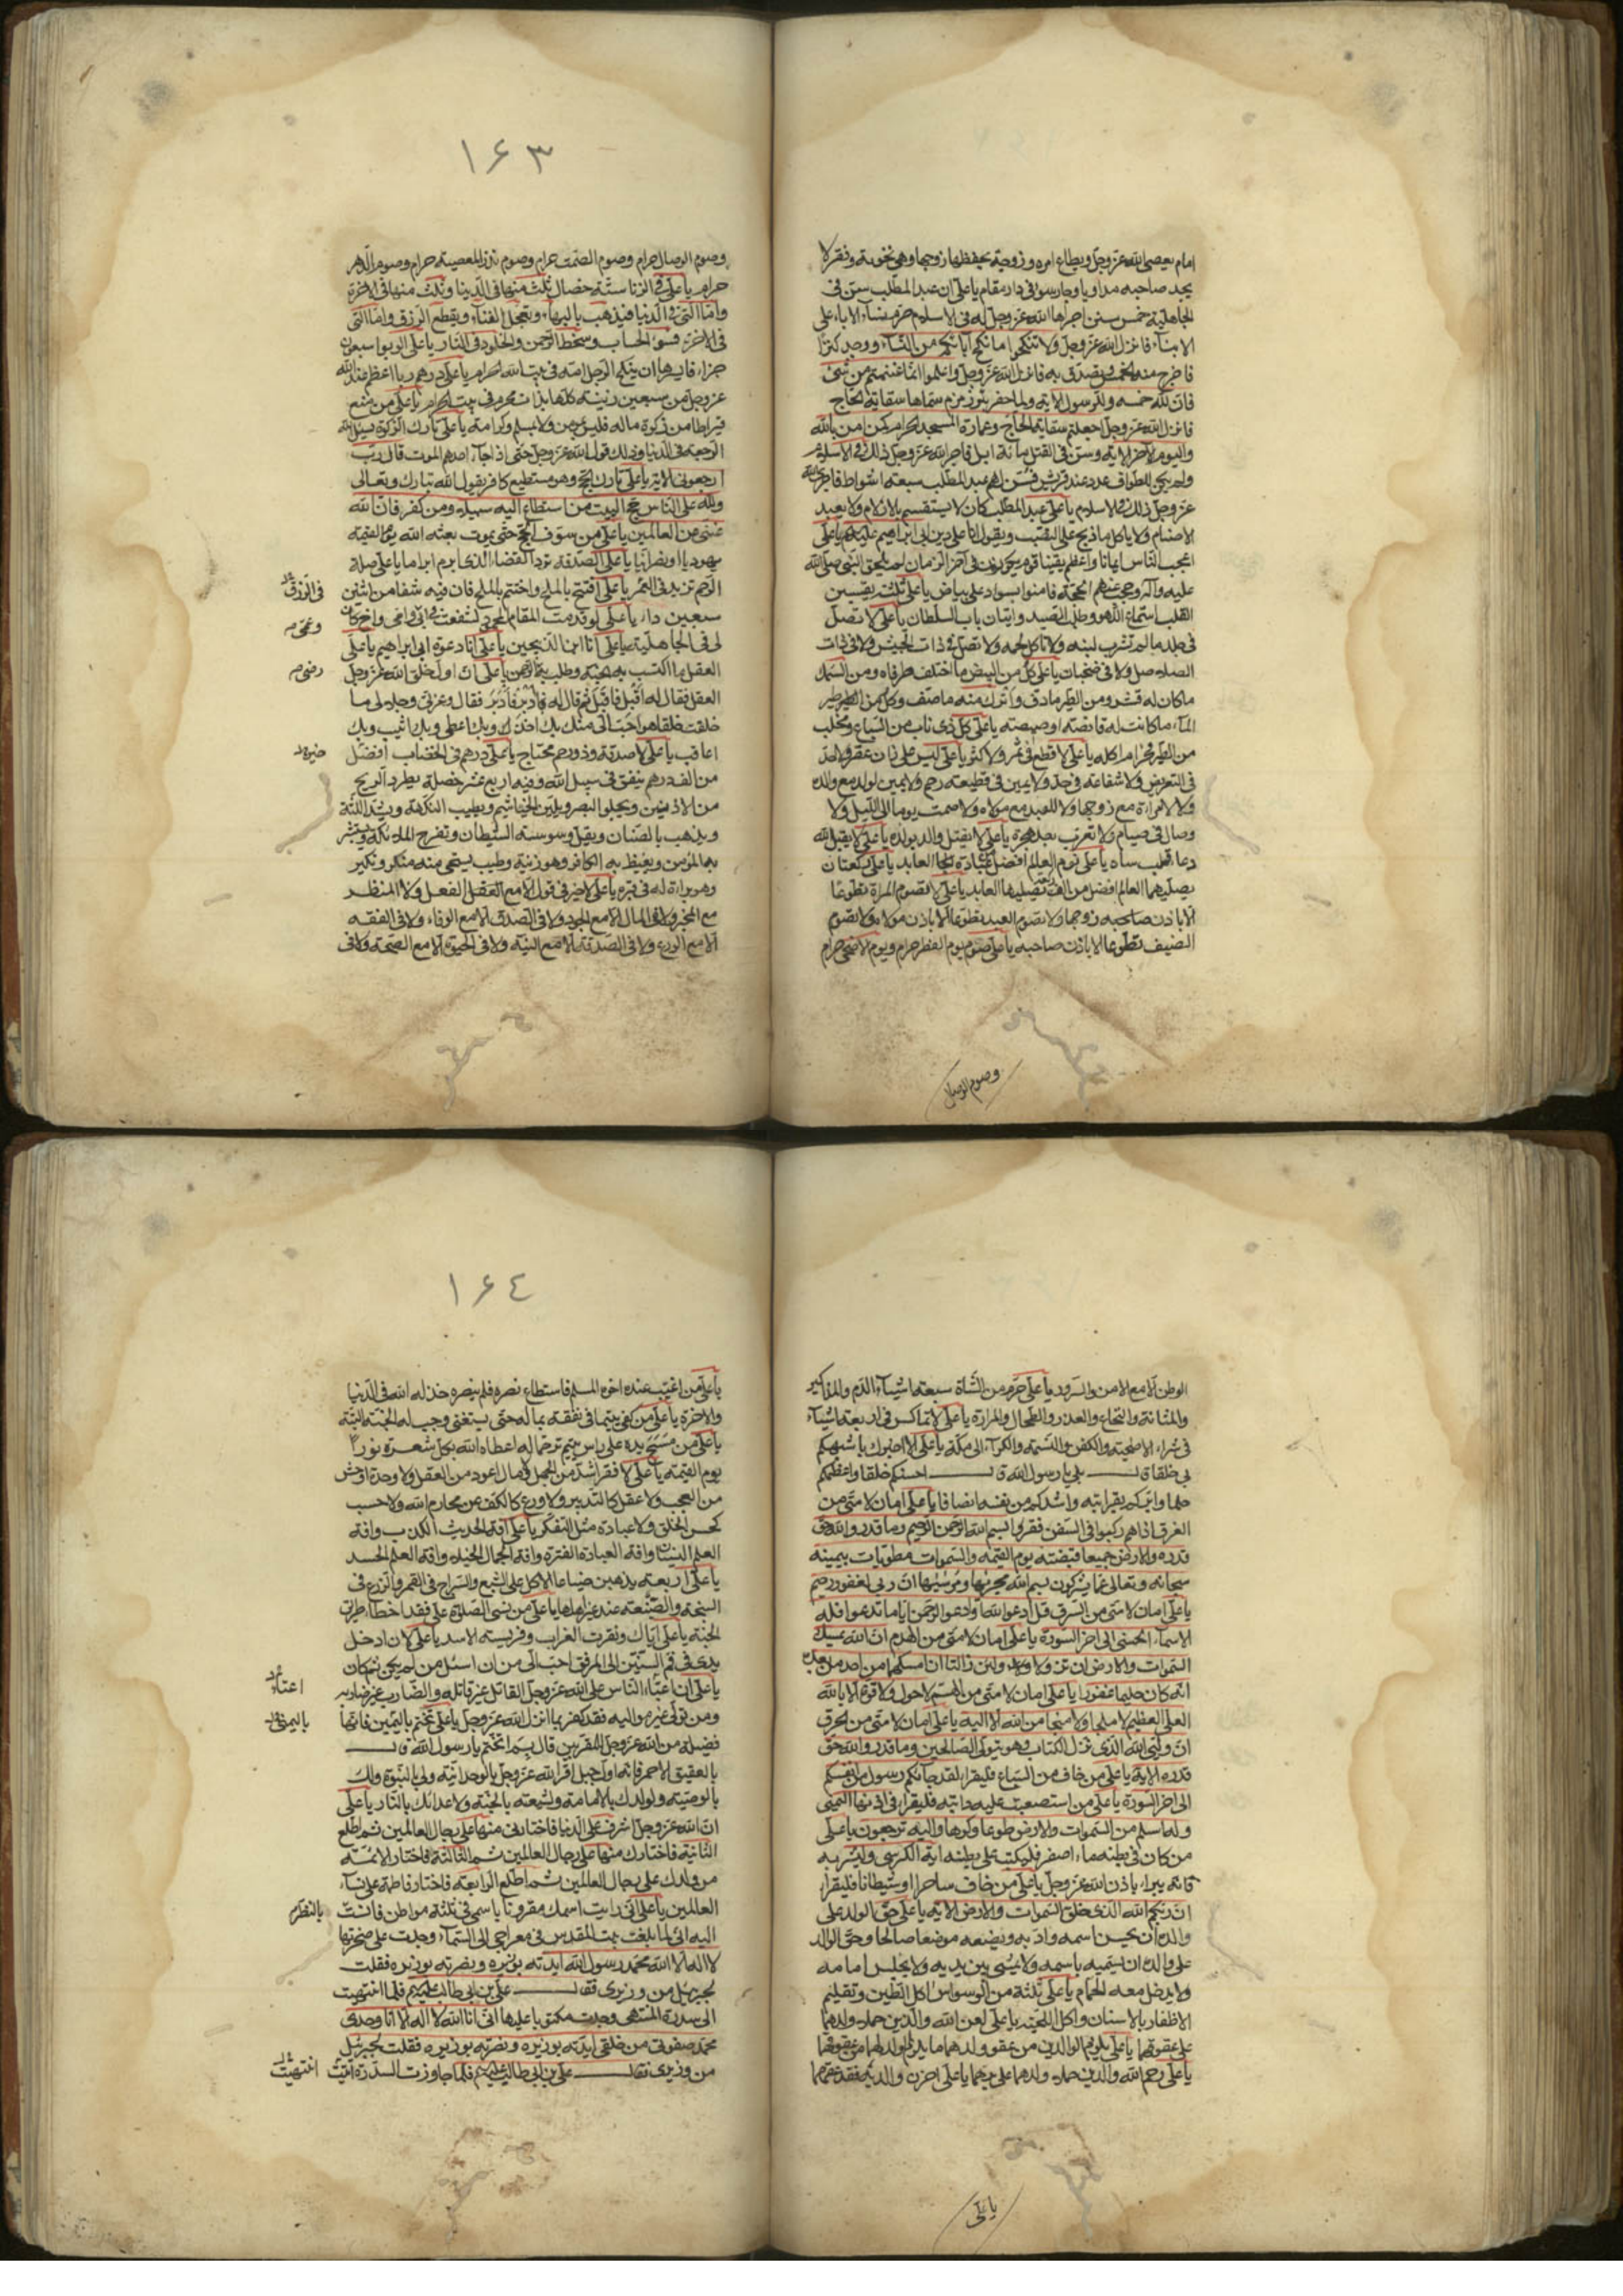 امام يعصى الله عز وجل ويطاع امره وزوجة يحفظها زوجها وهى تخونه وفقر لا
يجد صاحبه مداويا وجار سوء فى دار مقام يا على ان عبد المطلب سن فى
الجاهلية خمس سنن اجراها الله عز وجل له فى الاسلام حرم نساء الاباء على
الابناء فانزل الله عز وجل ولا تنكحوا ما نكح آباؤكم من النساء ووجد كنزا
فاخرج منه الخمس وتصدق به فانزل الله عز وجل واعلموا انما غنمتم من شئ
فان لله خمسه وللرسول الاية ولما حفر بئر زمزم سماها سقاية الحاج
فانزل الله عز وجل اجعلتم سقاية الحاج وعمارة المسجد الحرام كمن امن بالله
واليوم الاخر الاية وسن فى القتل مائة ابل فاجرالله عز وجل ذلك فى الاسلام
ولم يكن للطواف عدد عند قريش فسن لهم عبد المطلب سبعة اشواط فاجرى الله
عز وجل ذلك فى الاسلام يا على عبد المطلب كان لا يستقسم بالازلام ولا يعبد
الاصنام ولا ياكل ما ذبح على النصب ويقول انا على دين ابى ابراهيم عليه السلام يا على
اعجب الناس ايمانا واعظم يقينا قوم يكونون فى آخر الزمان لم يلحق النبى صلى الله
عليه وآله وحجب عنهم الحجة فامنوا بسواد على بياض يا على ثلثة يقسين
القلب استماع اللهو وطلب الصيد واتيان باب السلطان يا على لا تصل
فى جلد ما لم تشرب لبنه ولا تاكل لحمه ولا تصل فى ذات الجيش ولا فى ذات
الصلاصل ولا فى ضجنان يا على كل من البيض ما اختلف طرفاه ومن السمك
ما كان له قشر ومن الطير ما دف واترك منه ما صف وكل من الطير طير
الماء ما كانت له قانصة او صيصية يا على كل ذى ناب من السباع ومخلب
من الطير فحرام اكله يا على لا قطع فى ثمر ولا كثر يا على ليس على زان عقر ولا حد
فى التعريض ولا شفاعة فى حد ولا يمين فى قطيعة رحم ولا يمين لولد مع والده
ولا لامراة مع زوجها ولا للعبد مع مولاه ولا صمت يوما الى الليل ولا
وصال فى صيام ولا تعرب بعد هجرة يا على لا يقتل والد بولده يا على لا يقبل الله
دعا قلب ساه يا على نوم العالم افضل من عبادة العابد يا على ركعتان
يصليهما العالم افضل من الف ركعة يصليها العابد يا على لا تصوم المراة تطوعا
الا باذن زوجها ولا يصوم العبد تطوعا الا باذن مولاه ولا يصوم
الضيف تطوعا الا باذن صاحبه يا على صوم يوم الفطر حرام وصوم يوم الاضحى حرام
وصوم الوصال
١۶٣
وصوم الوصال حرام وصوم الصمت حرام وصوم نذر المعصية حرام وصوم الدهر
حرام يا على فى الزنا ستة خصال ثلث منها فى الدنيا وثلث منها فى الاخرة
واما التى فى الدنيا فيذهب بالبهاء ويعجل الفناء ويقطع الرزق واما التى
فى الاخرة فسوء الحساب وسخط الرحمن والخلود فى النار يا على الربوا سبعون
جزاء فايسرها ان ينكح الرجل امه فى بيت الله الحرام يا على درهم ربا اعظم عند الله
عز وجل من سبعين زنية كلها بذات محرم فى بيت الله الحرام يا على من منع
قيراطا من زكوة ماله فليس بمؤمن ولا بمسلم ولا كرامة يا على تارك الزكوة يسئل الله
الرجعة فى الدنيا وذلك قول الله عز وجل حتى اذا جاء احدهم الموت قال رب
ارجعونى الاية يا على تارك الحج وهو مستطيع كافر يقول الله تبارك وتعالى
ولله على الناس حج البيت من استطاع اليه سبيلا ومن كفر فان الله
غنى عن العالمين يا على من سوف الحج حتى يموت بعثه الله يوم القيمة
يهوديا او نصرانيا يا على الصدقة ترد القضاء الذى ابرم ابراما يا على صلة
الرحم تزيد فى العمر يا على افتتح بالملح واختتم بالملح فان فيه شفا من اثنين
فى الرزق
سبعين داء يا على لو قد قمت المقام المحمود لشفعت فى ابى وامى واخ كان
وعمى
لى فى الجاهلية يا على انا ابن الذبيحين يا على انا دعوة ابى ابراهيم يا على
العقل ما اكتسب به الجنة وطلب به الرحمن يا على ان اول خلق خلقه الله عز وجل
رضى
العقل فقال له اقبل فاقبل ثم قال له ادبر فادبر فقال وعزتى وجلالى ما
خلقت خلقا هو احب الى منك بك اخذ وبك اعطى وبك اثيب وبك
اعاقب يا على لا صدقة وذو رحم محتاج يا على درهم فى الخضاب افضل
خير
من الف درهم ينفق فى سبيل الله وفيه اربع عشر خصلة يطرد الريح
من الاذنين ويجلو البصر ويلين الخياشيم ويطيب النكهة ويشد اللثة
ويذهب بالضنان ويقل وسوسة الشيطان وتفرح الملائكة ويستبشر
به المؤمن ويغيظ به الكافر وهو زينة وطيب يستحى منه منكر ونكير
وهو براءة له فى قبره يا على لا خير فى قول الا مع الفعل ولا المنظر
مع المخبر ولا فى المال الا مع الجود ولا فى الصدق الا مع الوفاء ولا فى الفقه
الا مع الورع ولا فى الصدقة الا مع النية ولا فى الحيوة الا مع الصحة ولا فى
الوطن الا مع الامن والسرور يا على حرم من الشاة سبعة اشياء الدم والمذاكير
والمثانة والنخاع والغدد والطحال والمرارة يا على لا تماكس فى اربعة اشياء
فى شراء الاضحية والكفن والنسمة والكراء الى مكة يا على الا اخبرك باشبهكم
بى خلقا قال بلى يا رسول الله قال احسنكم خلقا واعظمكم
حلما وابركم بقرابته واشدكم من نفسه انصافا يا على امان لامتى من
الغرق اذا هم ركبوا فى السفن فقروا بسم الله الرحمن الرحيم وما قدروا الله حق
قدره والارض جميعا قبضته يوم القيمة والسموات مطويات بيمينه
سبحانه وتعالى عما يشركون بسم الله مجريها ومرسيها ان ربى لغفور رحيم
يا على امان لامتى من السرق قل ادعوا الله او ادعوا الرحمن اياما تدعوا فله
الاسماء الحسنى الى اخر السورة يا على امان لامتى من الهدم ان الله يمسك
السموات والارض ان تزولا ولئن زالتا ان امسكهما من احد من بعده
انه كان حليما غفورا يا على امان لامتى من الهم لا حول ولا قوة الا بالله
العلى العظيم لا ملجا ولا منجا من الله الا اليه يا على امان لامتى من الحرق
ان وليى الله الذى نزل الكتاب وهو يتولى الصالحين وما قدروا الله حق
قدره الاية يا على من خاف من السباع فليقرا لقد جائكم رسول من انفسكم
الى اخر السورة يا على من استصعبت عليه دابته فليقرا فى اذنها اليمنى
وله اسلم من السموات والارض طوعا وكرها واليه ترجعون يا على
من كان فى بطنه ماء اصفر فليكتب على بطنه اية الكرسى وليشربه
فانه يبراء باذن الله عز وجل يا على من خاف ساحرا او شيطانا فليقرا
ان ربكم الله الذى خلق السموات والارض الاية يا على حق الولد على
والده ان يحسن اسمه وادبه ويضعه موضعا صالحا وحق الوالد
على ولده ان لا يسميه باسمه ولا يمشى بين يديه ولا يجلس امامه
ولا يدخل معه الحمام يا على ثلثة من الوسواس اكل الطين وتقليم
الاظفار بالاسنان واكل اللحية يا على لعن الله والدين حملا ولدهما
على عقوقهما يا على يلزم الوالدين من عقوق ولدهما ما يلزم الولد لهما من عقوقهما
يا على رحم الله والدين حملا ولدهما على برهما يا على من احزن والديه فقد عقهما
يا على
١۶٤
يا على من اغتيب عنده اخوه المسلم فاستطاع نصره فلم ينصره خذله الله فى الدنيا
والاخرة يا على من كفى يتيما فى نفقته بماله حتى يستغنى وجب له الجنة البتة
يا على من مسح يده على راس يتيم ترحما له اعطاه الله بكل شعرة نورا
يوم القيمة يا على لا فقر اشد من الجهل ولا مال اعود من العقل ولا وحدة اوحش
من العجب ولا عقل كالتدبير ولا ورع كالكف عن محارم الله ولا حسب
كحسن الخلق ولا عبادة مثل التفكر يا على آفة الحديث الكذب وافة
العلم النسيان وافة العبادة الفترة وافة الجمال الخيلاء وافة العلم الحسد
يا على اربعة يذهبن ضياعا الاكل على الشبع والسراج فى القمر والزرع فى
السبخة والصنيعة عند غير اهلها يا على من نسى الصلوة على فقد اخطاء طريق
الجنة يا على اياك ونقرة الغراب وفريسة الاسد يا على لان ادخل
يدى فى فم التنين الى المرفق احب الى من ان اسئل من لم يكن ثم كان
يا على ان اعتاء الناس على الله عز وجل القاتل غير قاتله والضارب غير ضاربه
ومن تولى غير مواليه فقد كفر بما انزل الله عز وجل يا على تختم باليمين فانها
باليمنى
فضيلة من الله عز وجل للمقربين قال بم اتختم يا رسول الله قال
بالعقيق الاحمر فانه اول جبل اقر الله عز وجل بالوحدانية ولى بالنبوة ولك
بالوصية ولولدك بالامامة ولشيعته بالجنة ولاعدائك بالنار يا على
ان الله عز وجل اشرف على الدنيا فاختارنى منها على رجال العالمين ثم اطلع
الثانية فاختارك منها على رجال العالمين ثم الثالثة فاختار الائمة
من ولدك على رجال العالمين ثم اطلع الرابعة فاختار فاطمة على نساء
العالمين يا على انى رايت اسمك مقرونا باسمى فى ثلثة مواطن فانست
بالنظر
اليه انى لما بلغت بيت المقدس فى معراجى الى السماء وجدت على صخرتها
لا اله الا الله محمد رسول الله ايدته بوزيره ونصرته بوزيره فقلت
لجبرئيل من وزيرى فقال على بن ابى طالب عليه السلام فلما انتهيت
الى سدرة المنتهى وجدت مكتوبا عليها انى انا الله لا اله الا انا وحدى
محمد صفوتى من خلقى ايدته بوزيره ونصرته بوزيره فقلت لجبرئيل
من وزيرى فقال على بن ابى طالب عليه السلام فلما جاوزت السدرة اتيت
انتهيت